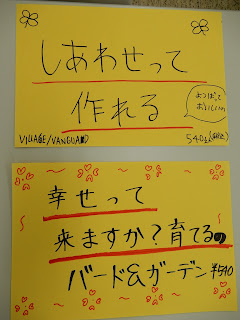 しあわせって
作れる
よつばって
おいしいの
VILLAGE/VANGUARD
540円(税込)
幸せって
来ますか？育てるの
バード&ガーデン ¥540